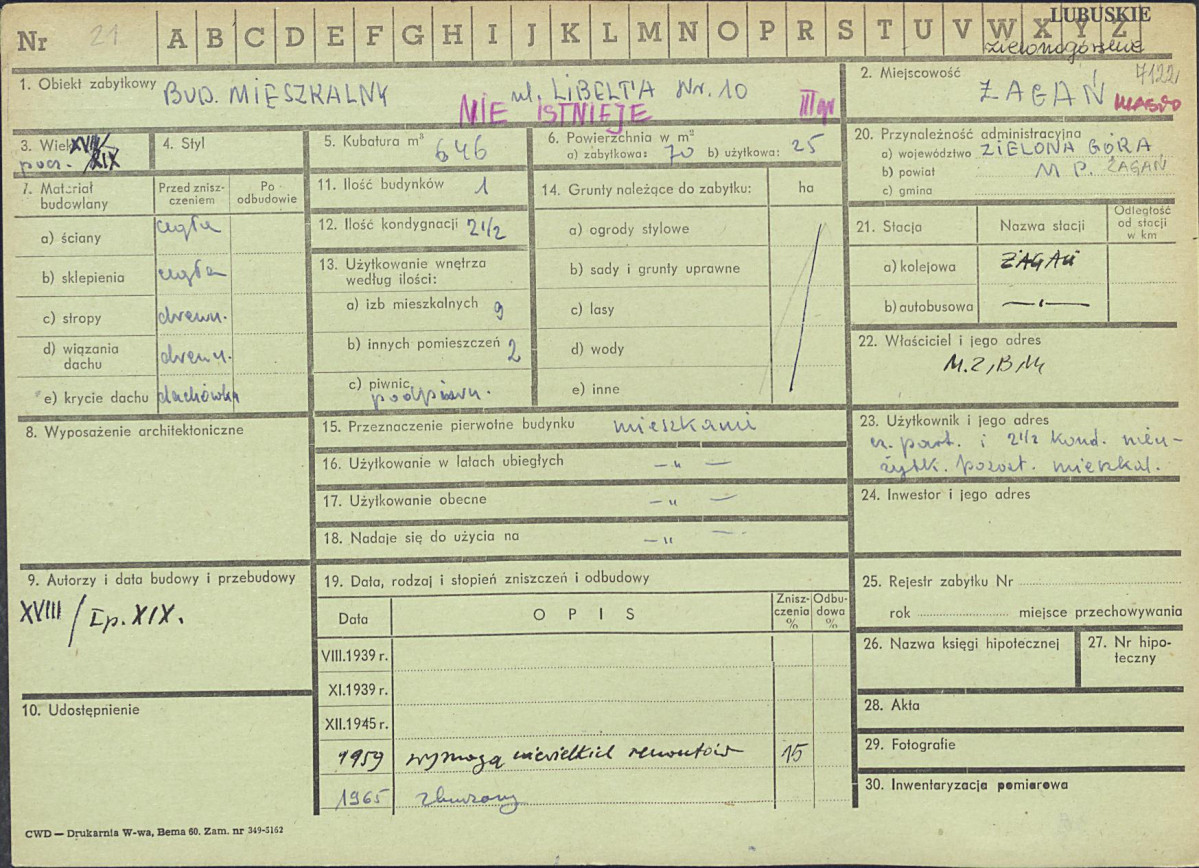 LUBUSKIE
Nr 21 A B C D E F G H I J K L M N O P R S T U V W X Y Z
zielonogórskie
1. Obiekt zabytkowy BUD. MIESZKALNY ul. LIBELTA Nr. 10
NIE ISTNIEJE III gr
2. Miejscowość 7122
ŻAGAŃ
3. Wiek XVIII/
pocz. XIX
4. Styl
5. Kubatura m³ 646
6. Powierzchnia w m²
a) zabytkowa: 70 b) użytkowa: 25
20. Przynależność administracyjna
a) województwo ZIELONA GÓRA
b) powiat M P. ŻAGAŃ
c) gmina
7. Materiał budowlany
Przed zniszczeniem
Po odbudowie
a) ściany cegła
b) sklepienia cegła
c) stropy drewn.
d) wiązania dachu drewn.
e) krycie dachu dachówka
11. Ilość budynków 1
12. Ilość kondygnacji 2 1/2
13. Użytkowanie wnętrza
według ilości:
a) izb mieszkalnych 9
b) innych pomieszczeń 2
c) piwnic podpiwn.
14. Grunty należące do zabytku: ha
a) ogrody stylowe
b) sady i grunty uprawne
c) lasy
d) wody
e) inne
21. Stacja
Nazwa stacji
Odległość od stacji w km
a) kolejowa ŻAGAŃ
b) autobusowa
22. Właściciel i jego adres
M.Z.B.M
8. Wyposażenie architektoniczne
15. Przeznaczenie pierwotne budynku
16. Użytkowanie w latach ubiegłych — „ —
17. Użytkowanie obecne — „ —
18. Nadaje się do użycia na — „ —
23. Użytkownik i jego adres
cz. part. i 2 1/2 kond. nieu-
żytk. pozost. mieszkal.
24. Inwestor i jego adres
9. Autorzy i data budowy i przebudowy
XVIII / I p. XIX.
10. Udostępnienie
19. Data, rodzaj i stopień zniszczeń i odbudowy
Data
OPIS
Zniszczenia %
Odbudowa %
VIII.1939 r.
XI.1939 r.
XII.1945 r.
1959 wymaga niewielkich remontów 15
1965 zburzony
25. Rejestr zabytku Nr
rok miejsce przechowywania
26. Nazwa księgi hipotecznej
27. Nr hipoteczny
28. Akta
29. Fotografie
30. Inwentaryzacja pomiarowa
CWD — Drukarnia W-wa, Bema 60. Zam. nr 349-5162